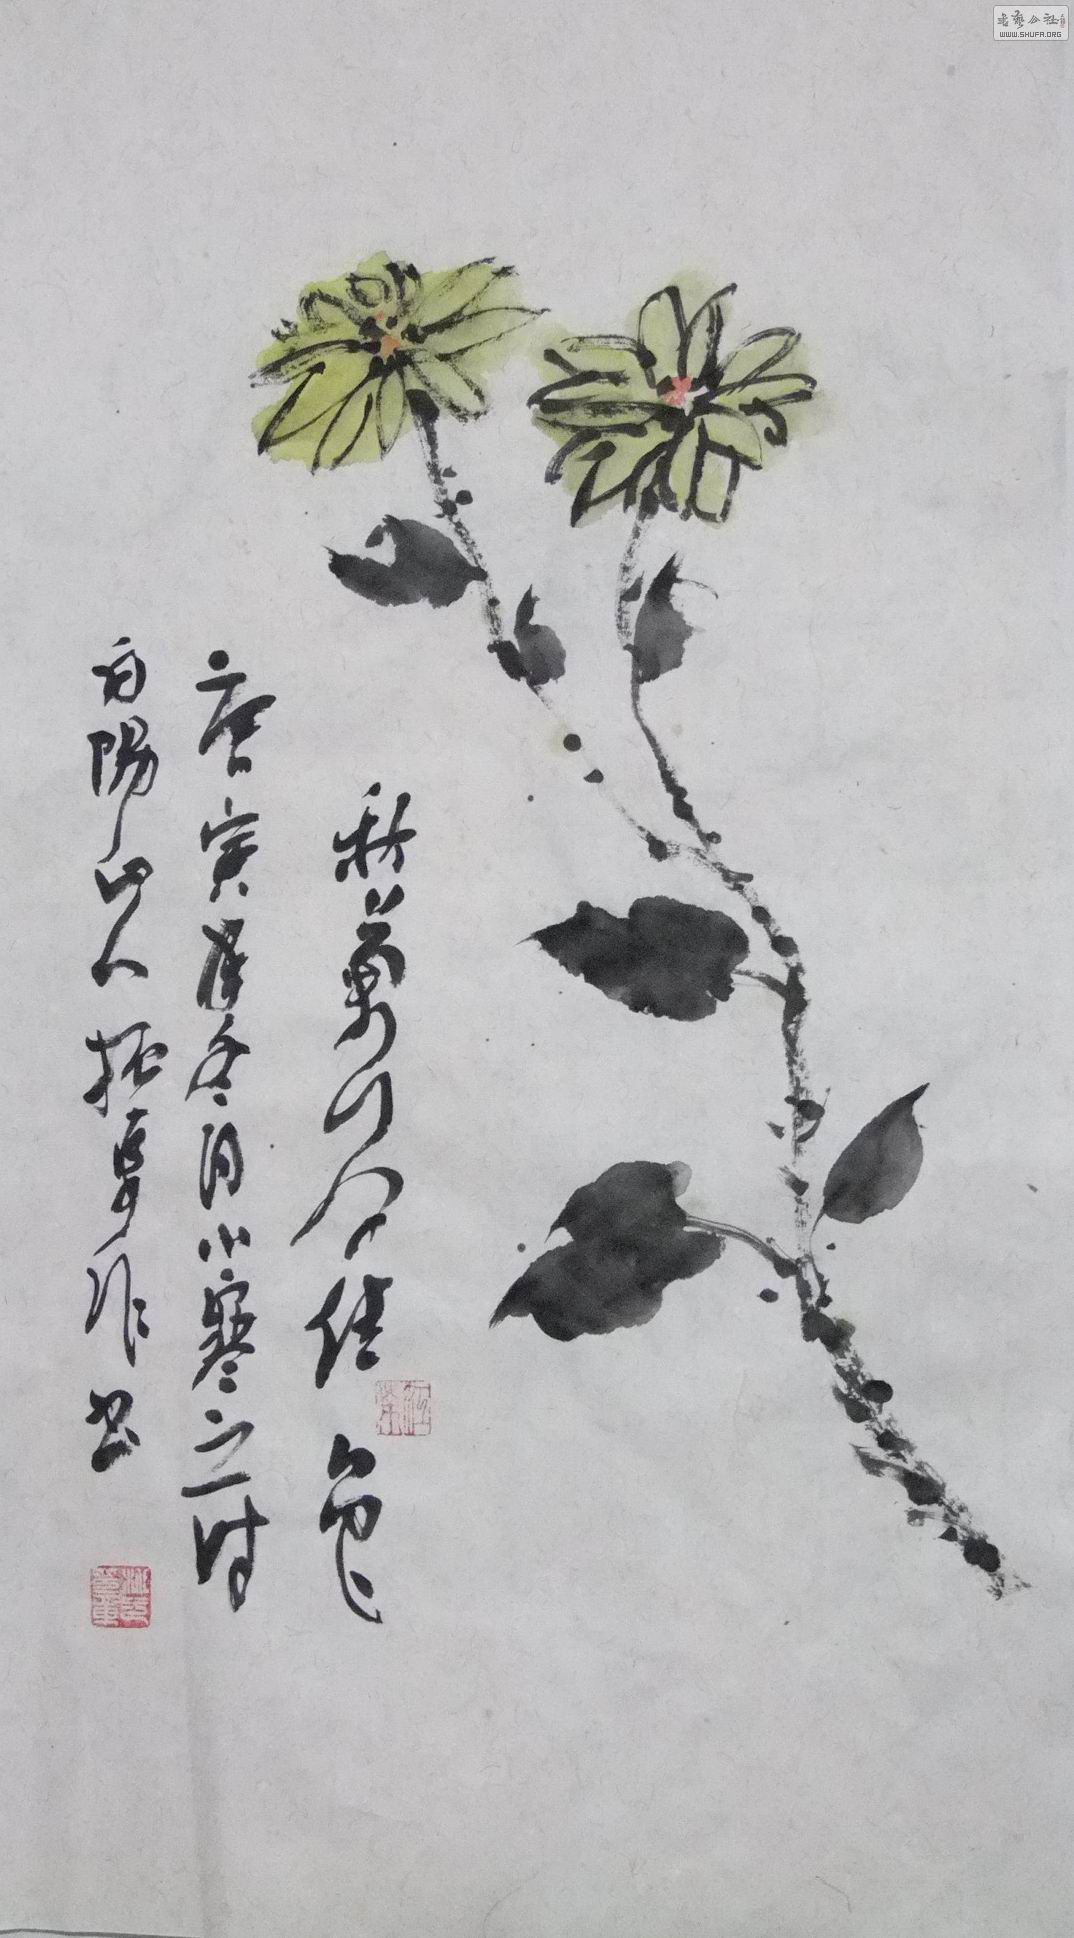 秋菊有佳色
庚寅年冬月小寒之时
白阳山人振章作书
书艺公社
WWW.SHUFA.ORG